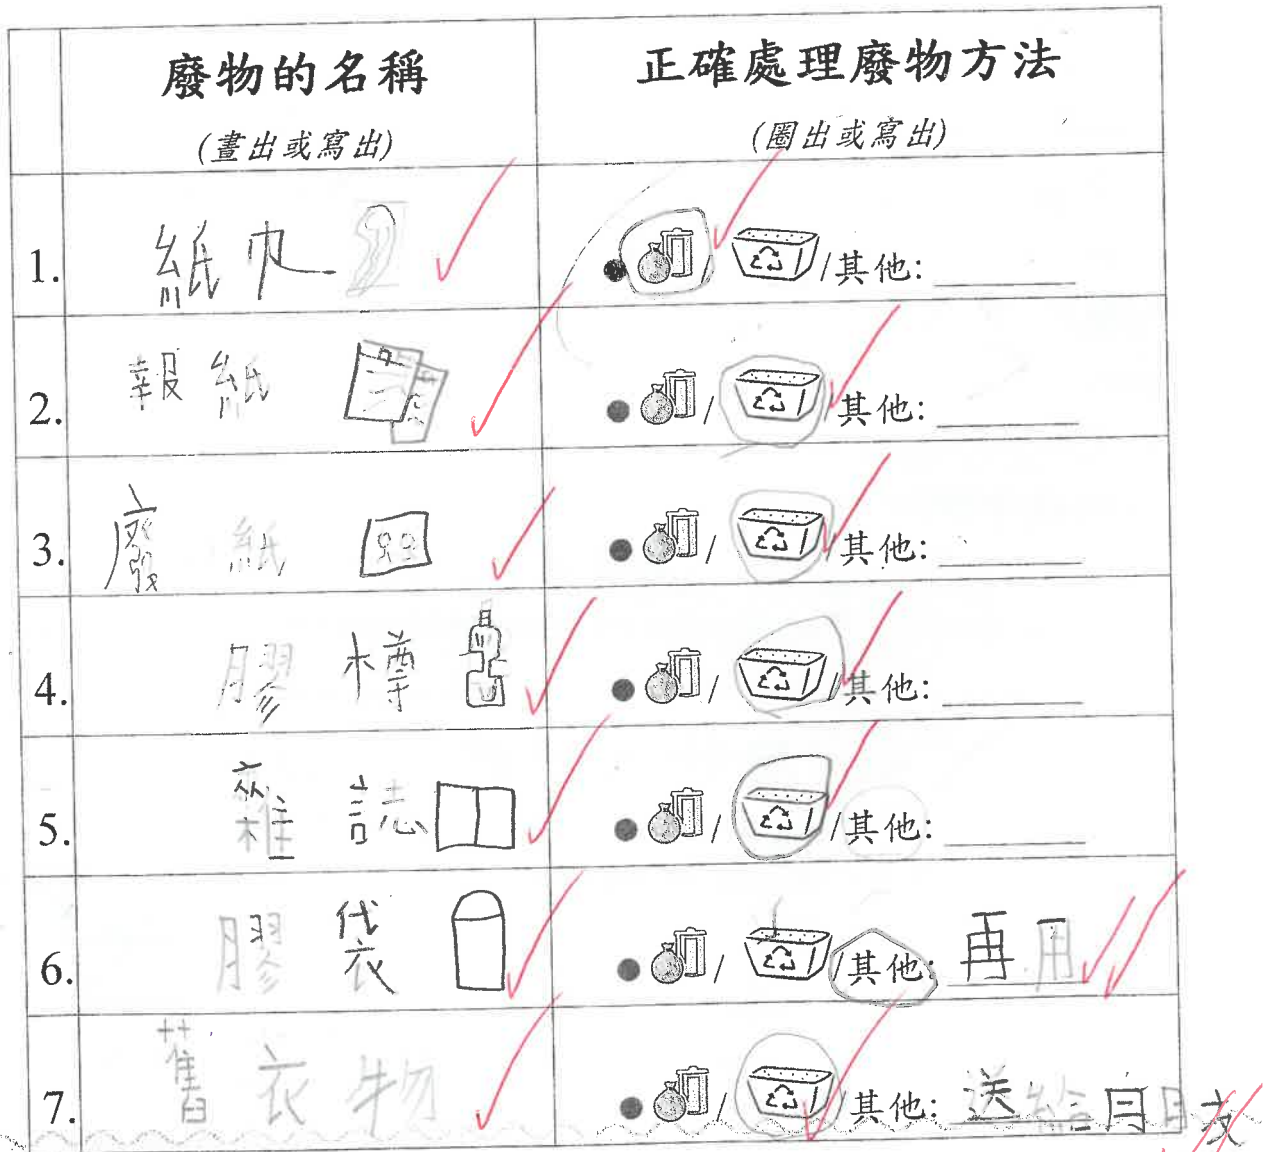 廢物的名稱
(畫出或寫出)
正確處理廢物方法
(圈出或寫出)
1. 紙巾 / /其他:
2. 報紙 / /其他:
3. 廢紙 / /其他:
4. 膠樽 / /其他:
5. 雜誌 / /其他:
6. 膠袋 / /其他: 再用
7. 舊衣物 / /其他: 送給朋友